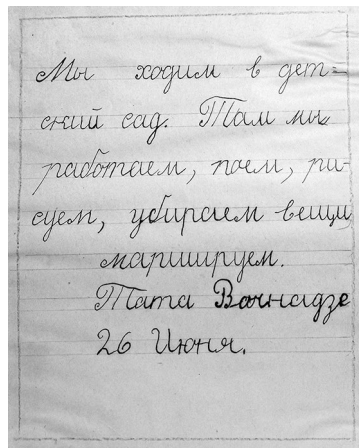 Мы ходим в дет=
ский сад. Там мы
работаем, поем, ри-
суем, убираем вещи,
маршируем.
Тата Вачнадзе
26 Июня.